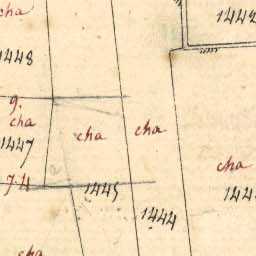 cha
1448
9.
cha
1447
7.4
cha
cha
cha
1445
1444
cha